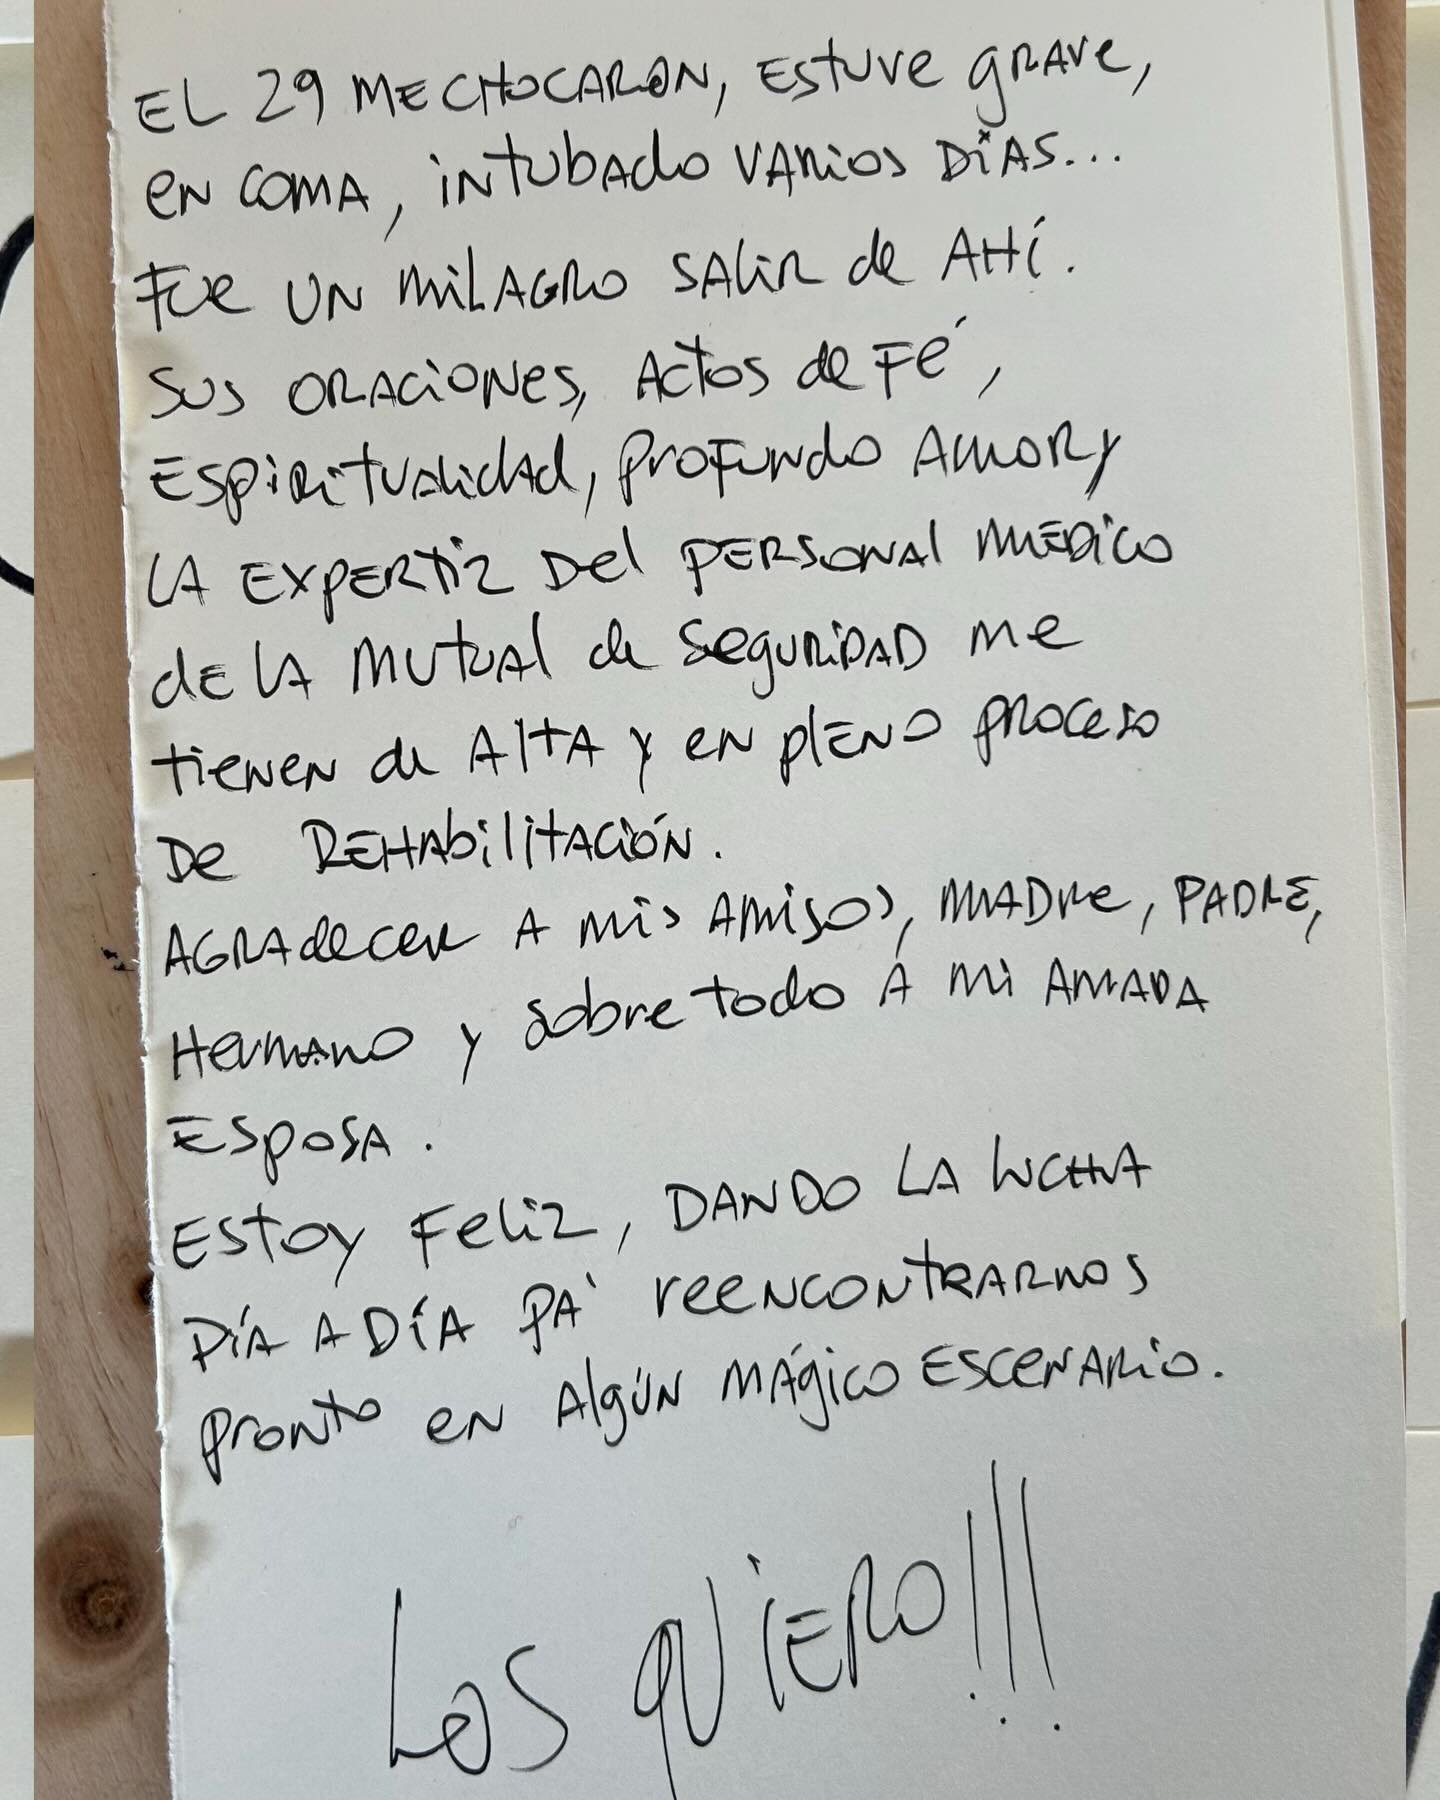 EL 29 ME CHOCARON, ESTUVE GRAVE,
EN COMA, INTUBADO VARIOS DÍAS...
FUE UN MILAGRO SALIR DE AHÍ.
SUS ORACIONES, ACTOS DE FÉ,
ESPIRITUALIDAD, PROFUNDO AMOR Y
LA EXPERTIZ DEL PERSONAL MÉDICO
DE LA MUTUAL DE SEGURIDAD ME
TIENEN DE ALTA Y EN PLENO PROCESO
DE REHABILITACIÓN.
AGRADECER A MIS AMIGOS, MADRE, PADRE,
HERMANO Y SOBRE TODO A MI AMADA
ESPOSA.
ESTOY FELIZ, DANDO LA LUCHA
DÍA A DÍA PA' REENCONTRARNOS
PRONTO EN ALGÚN MÁGICO ESCENARIO.
LOS QUIERO!!!